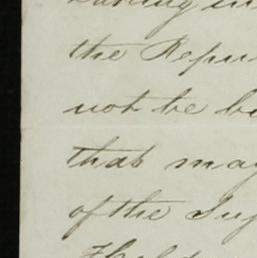 the Repu
not be be
that may
of the Sup